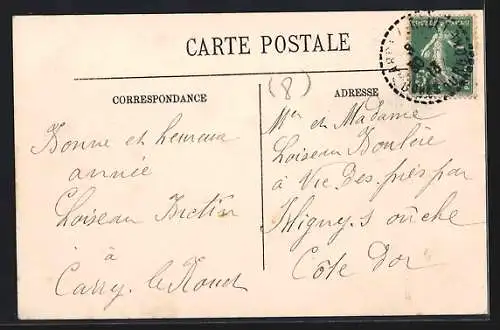 CARTE POSTALE
(8)
CORRESPONDANCE
Bonne et heureuse
année
Loiseau
à
Carry. le Rouet
ADRESSE
Mr et Madame
Loiseau
à Vic Des prés par
Bligny. s ouche
Côte D'or